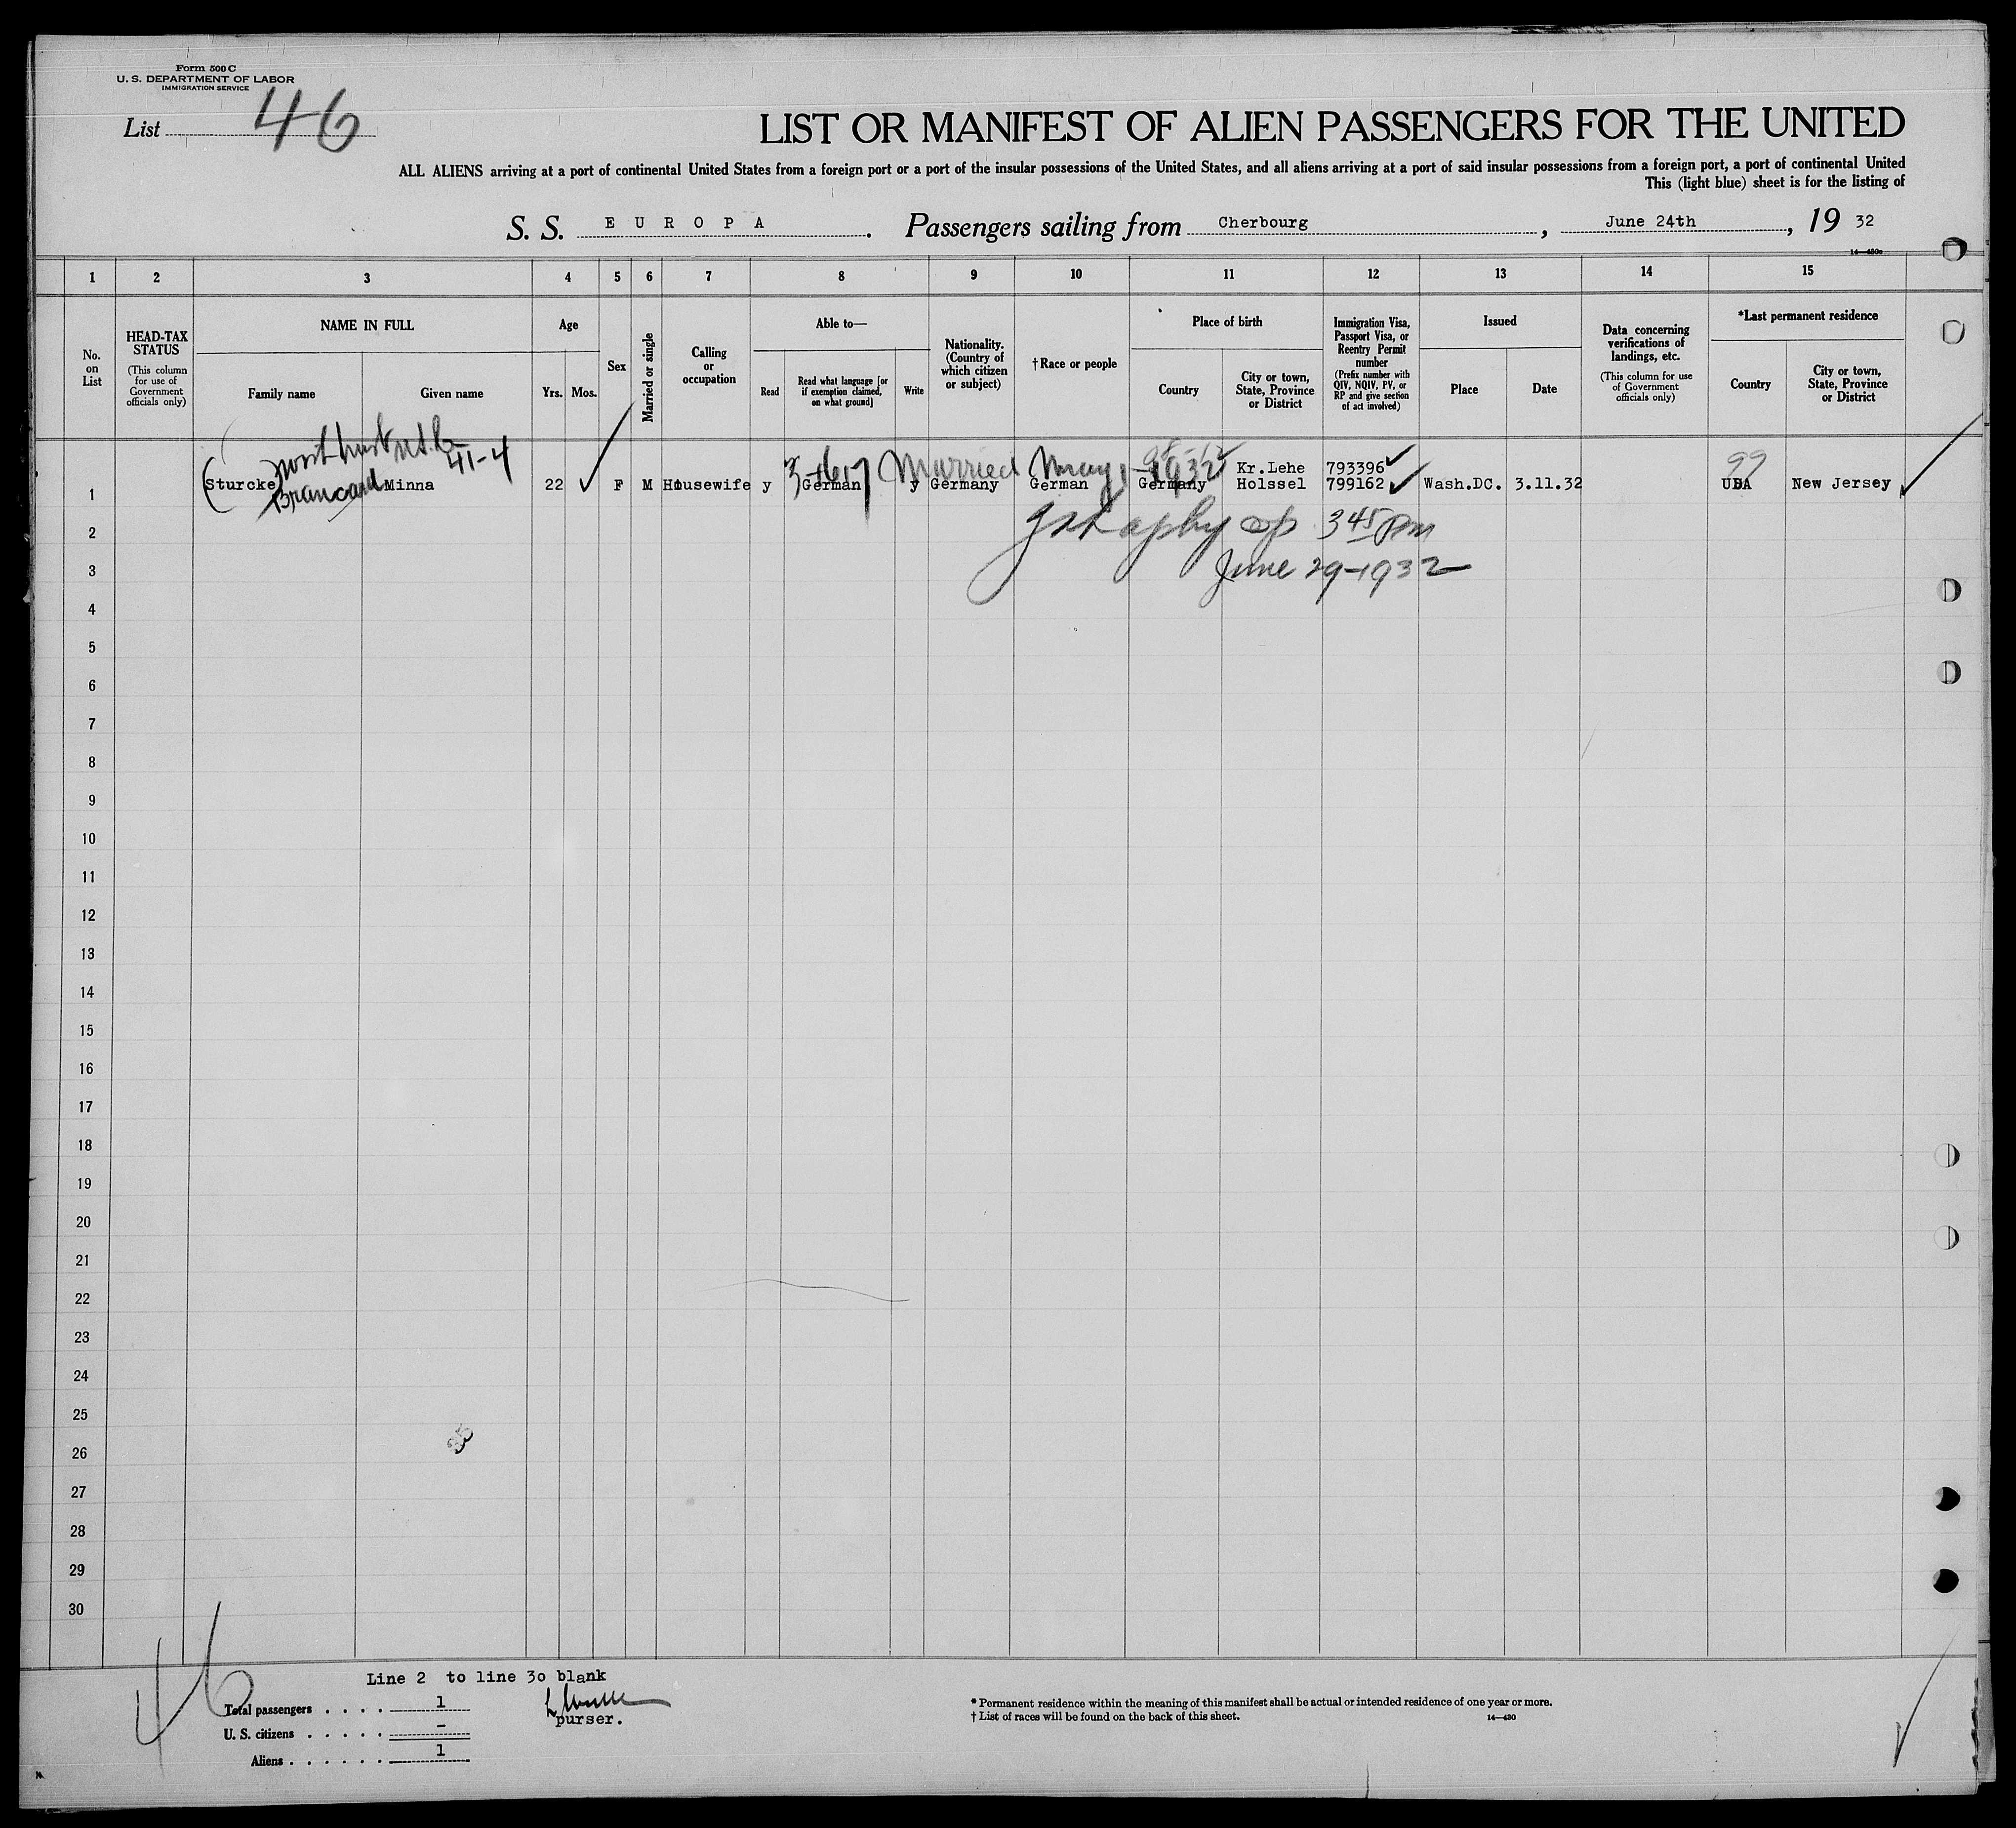 Form 500 C
U. S. DEPARTMENT OF LABOR
IMMIGRATION SERVICE
List 46
LIST OR MANIFEST OF ALIEN PASSENGERS FOR THE UNITED
ALL ALIENS arriving at a port of continental United States from a foreign port or a port of the insular possessions of the United States, and all aliens arriving at a port of said insular possessions from a foreign port, a port of continental United
This (light blue) sheet is for the listing of
S. S. EUROPA. Passengers sailing from Cherbourg, June 24th, 19 32
14—430c
1 2 3 4 5 6 7 8 9 10 11 12 13 14 15
No. on List
HEAD-TAX STATUS
(This column for use of Government officials only)
NAME IN FULL
Family name
Given name
Age
Yrs.
Mos.
Sex
Married or single
Calling or occupation
Able to—
Read
Read what language [or if exemption claimed, on what ground]
Write
Nationality. (Country of which citizen or subject)
† Race or people
Place of birth
Country
City or town, State, Province or District
Immigration Visa, Passport Visa, or Reentry Permit number
(Prefix number with QIV, NQIV, PV, or RP and give section of act involved)
Issued
Place
Date
Data concerning verifications of landings, etc.
(This column for use of Government officials only)
*Last permanent residence
Country
City or town, State, Province or District
41-4
Married May 1932
Kr.Lehe 793396 99
1 (Sturcke) Minna 22 F M Housewife y German y Germany German Germany Holssel 799162 Wash.DC. 3.11.32 USA New Jersey
Brancard
2 3 45 Pm
3 June 29-1932
4
5
6
7
8
9
10
11
12
13
14
15
16
17
18
19
20
21
22
23
24
25
26
27
28
29
30
46
Line 2 to line 3o blank
Total passengers . . . . 1
U. S. citizens . . . . . –
Aliens . . . . . . 1
purser.
* Permanent residence within the meaning of this manifest shall be actual or intended residence of one year or more.
† List of races will be found on the back of this sheet.
14—430